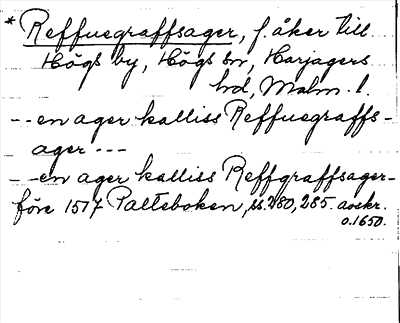 * Reffuegraffsager, f. åker till
Högs by, Högs sn, Harjagers
hd, Malm. l.
-- en ager kalliss Reffuegraffs-
ager ---
-- en ager kalliss Reffgraffsager-
före 1517 Palteboken, ss. 280, 285. avskr.
o. 1650.